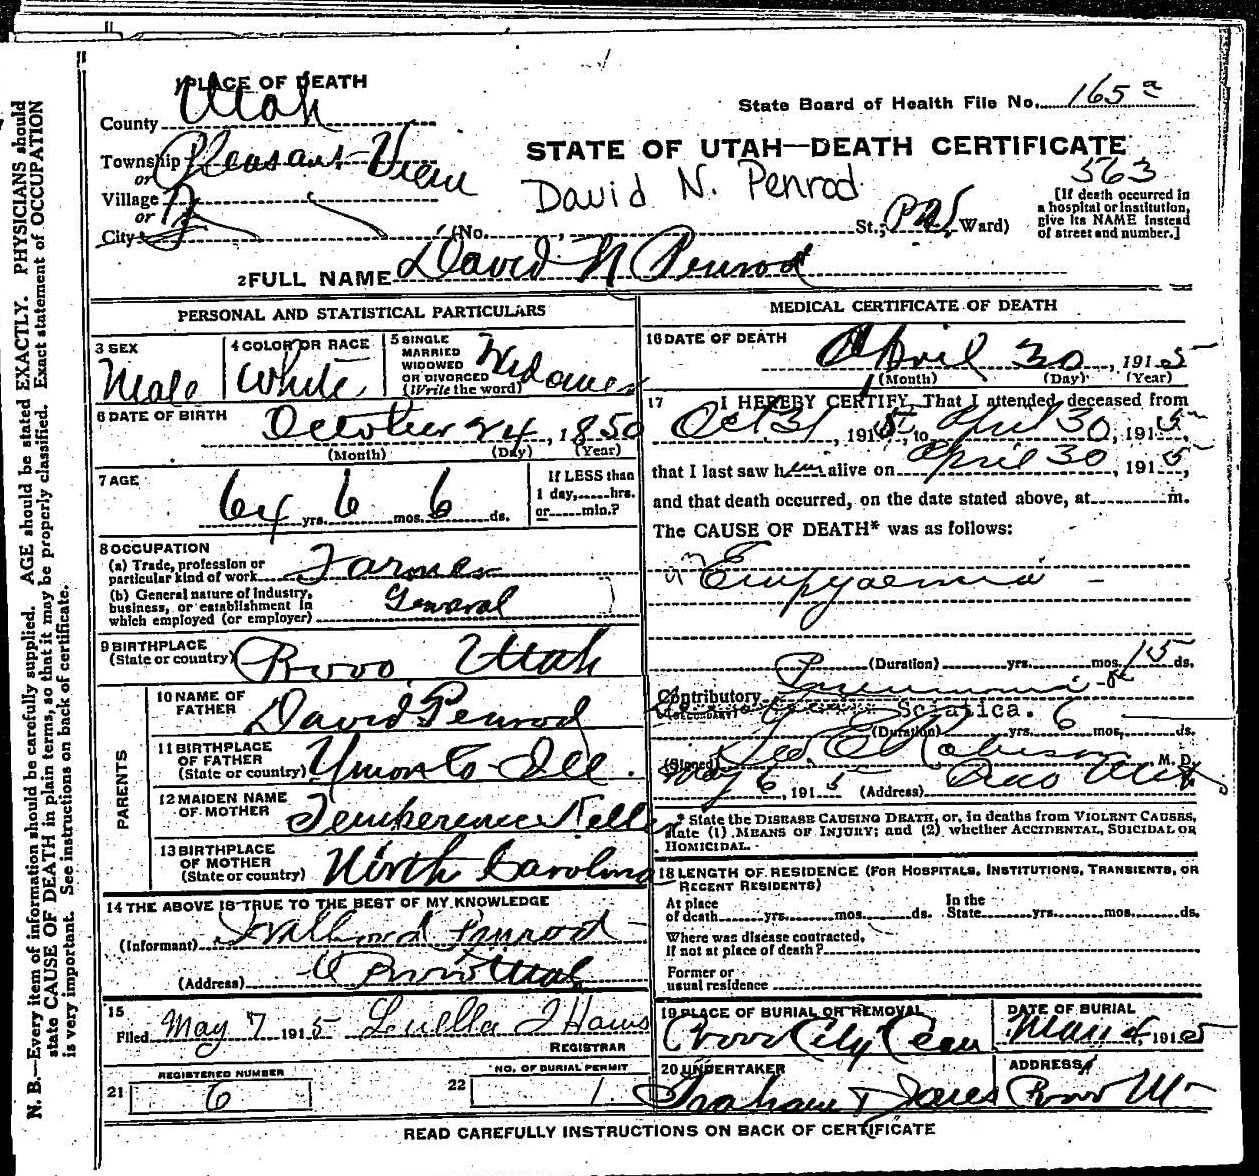 1 PLACE OF DEATH
County Utah
State Board of Health File No. 165
Township Pleasant View
or
STATE OF UTAH—DEATH CERTIFICATE
563
David N. Penrod
Village
or
City
(No. St.; Ward)
[If death occurred in
a hospital or institution,
give its NAME instead
of street and number.]
2 FULL NAME David N Penrod
PERSONAL AND STATISTICAL PARTICULARS
3 SEX
Male
4 COLOR OR RACE
White
5 SINGLE
MARRIED
WIDOWED
OR DIVORCED
(Write the word)
Widower
6 DATE OF BIRTH
October 24, 1850
(Month) (Day) (Year)
7 AGE
64 yrs. 6 mos. 6 ds.
If LESS than
1 day,......hrs.
or......min.?
8 OCCUPATION
(a) Trade, profession or
particular kind of work Farmer
(b) General nature of Industry,
business, or establishment in
which employed (or employer) General
9 BIRTHPLACE
(State or country) Provo Utah
PARENTS
10 NAME OF
FATHER David Penrod
11 BIRTHPLACE
OF FATHER
(State or country) Union Co Ill.
12 MAIDEN NAME
OF MOTHER Temkerence Keller
13 BIRTHPLACE
OF MOTHER
(State or country) North Carolina
14 THE ABOVE IS TRUE TO THE BEST OF MY KNOWLEDGE
(Informant) Penrod
(Address) Provo Utah
15
Filed May 7 1915 Luella J Haws
REGISTRAR
21 REGISTERED NUMBER
6
22 NO. OF BURIAL PERMIT
1
MEDICAL CERTIFICATE OF DEATH
16 DATE OF DEATH
April 30, 1915
(Month) (Day) (Year)
17 I HEREBY CERTIFY, That I attended deceased from
Oct 31, 191 , to April 30, 1915,
that I last saw him alive on April 30, 1915,
and that death occurred, on the date stated above, at m.
The CAUSE OF DEATH* was as follows:
Empyaemia
(Duration) yrs. mos. 15 ds.
Contributory Pneumonia
(SECONDARY) Sciatica. 6
(Duration) yrs. mos. ds.
(Signed) Geo. E Robison M. D.
May 6, 1915 (Address) Provo Utah
* State the DISEASE CAUSING DEATH, or, in deaths from VIOLENT CAUSES,
state (1) MEANS OF INJURY; and (2) whether ACCIDENTAL, SUICIDAL OR
HOMICIDAL.
18 LENGTH OF RESIDENCE (FOR HOSPITALS, INSTITUTIONS, TRANSIENTS, OR
RECENT RESIDENTS)
At place
of death yrs. mos. ds.
In the
State yrs. mos. ds.
Where was disease contracted,
if not at place of death?
Former or
usual residence
19 PLACE OF BURIAL OR REMOVAL
Provo City Cem
DATE OF BURIAL
May 4, 1915
20 UNDERTAKER
Graham & Jones
ADDRESS
Provo
READ CAREFULLY INSTRUCTIONS ON BACK OF CERTIFICATE
N. B.—Every item of information should be carefully supplied. AGE should be stated EXACTLY. PHYSICIANS should
state CAUSE OF DEATH in plain terms, so that it may be properly classified. Exact statement of OCCUPATION
is very important. See instructions on back of certificate.